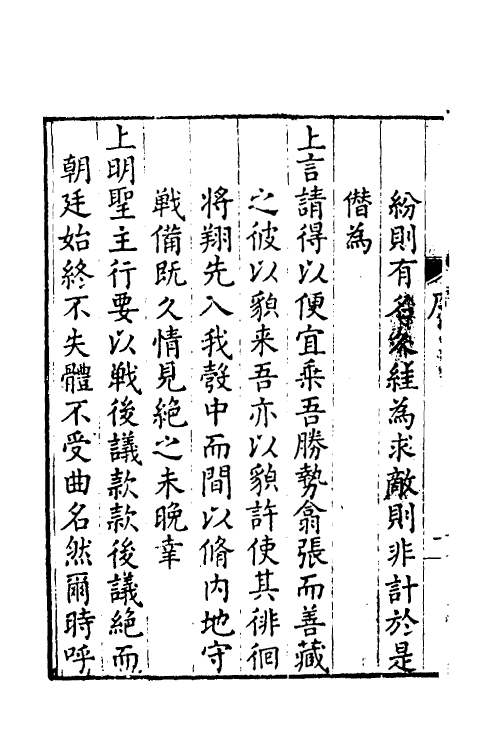 紛則有名家絓為求敵則非計於是
僭為
上言請得以便宜乘吾勝勢翕張而善藏
之彼以貌来吾亦以貌許使其徘徊
将翔先入我彀中而間以脩内地守
戦備既久情見絶之未晚幸
上明聖主行要以戦後議款款後議絶而
朝廷始終不失體不受曲名然爾時呼
序
二